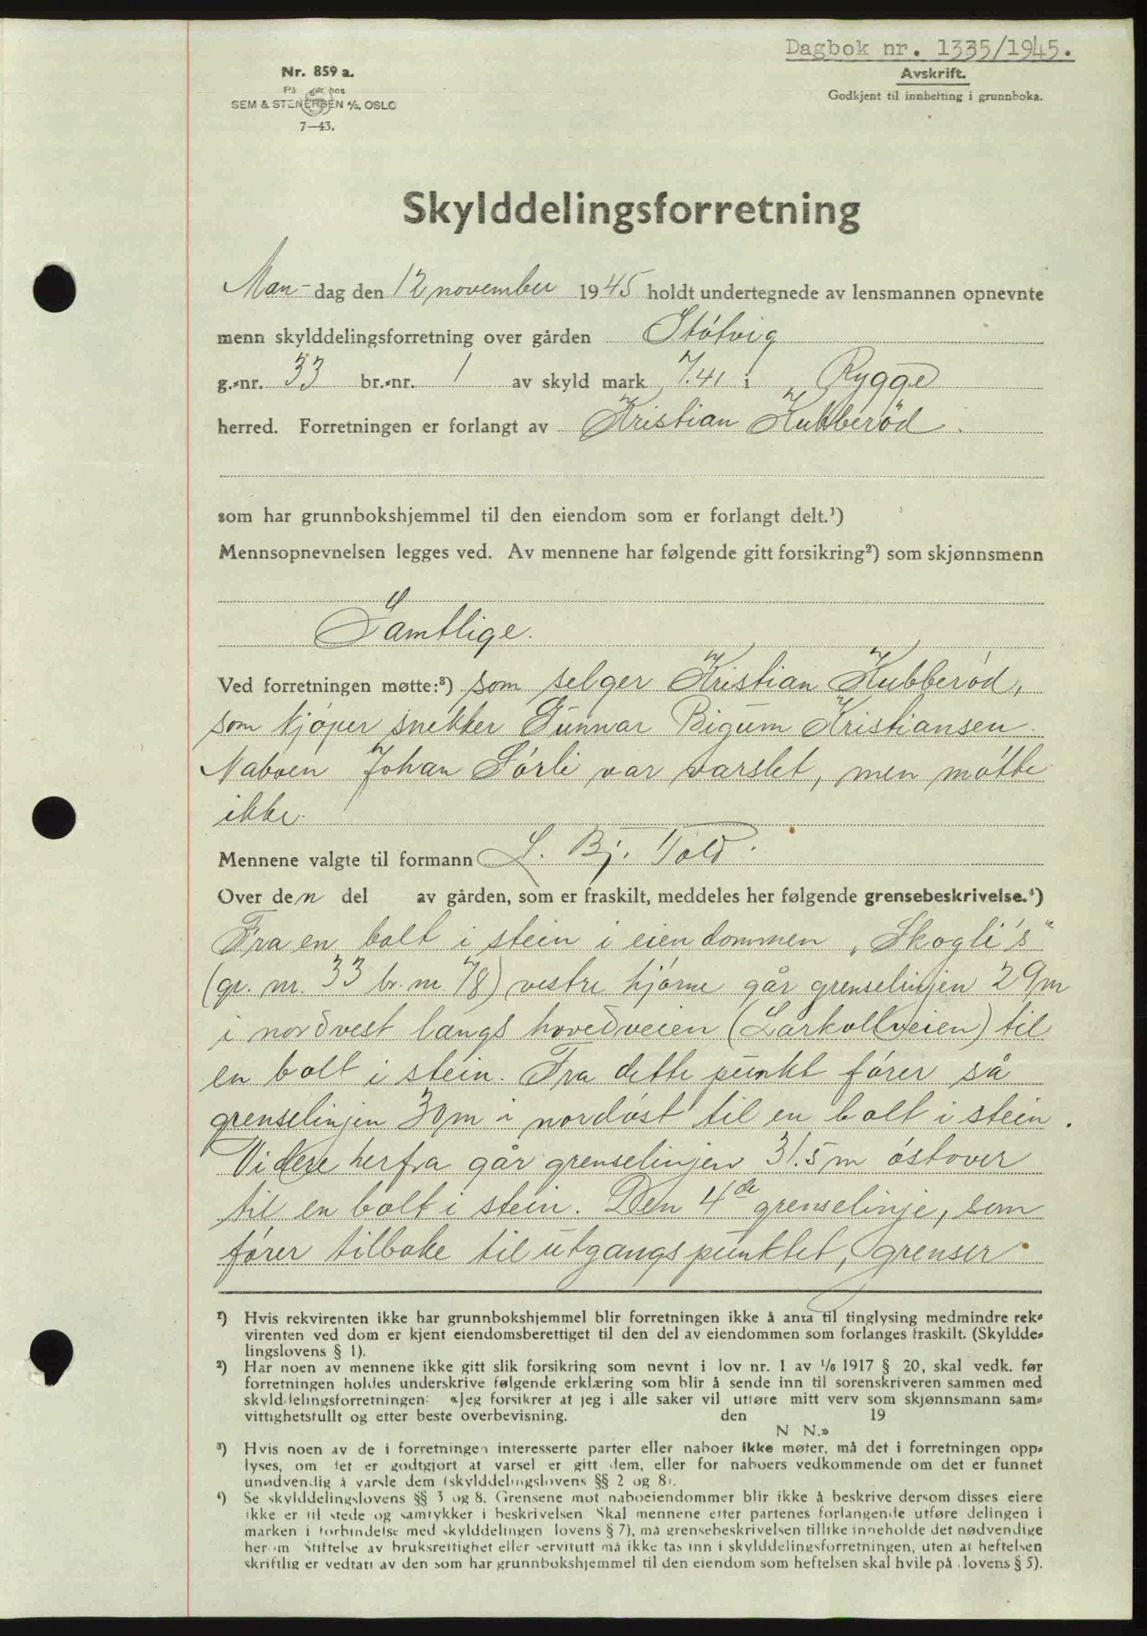 Dagbok nr. 1335/1945.
Avskrift.
Godkjent til innhefting i grunnboka.
Nr. 859 a.
På lager hos
SEM & STENERSEN A/S, OSLO
7—43.
Skylddelingsforretning
Man- dag den 12 november 1945 holdt undertegnede av lensmannen opnevnte
menn skylddelingsforretning over gården Støtvig
g.-nr. 33 br.-nr. 1 av skyld mark 7.41 i Rygge
herred. Forretningen er forlangt av Kristian Hubberød.
som har grunnbokshjemmel til den eiendom som er forlangt delt.¹)
Mennsopnevnelsen legges ved. Av mennene har følgende gitt forsikring²) som skjønnsmenn
Samtlige.
Ved forretningen møtte:³) som selger Kristian Hubberød,
som kjøper snekker Gunnar Bigum Kristiansen.
Naboen Johan Sørli var varslet, men møtte
ikke.
Mennene valgte til formann L. Bj. Told.
Over den del av gården, som er fraskilt, meddeles her følgende grensebeskrivelse.⁴)
Fra en bolt i stein i eiendommen „Skogli's"
(gr. nr. 33 br. nr. 78) vestre hjørne går grenselinjen 29m
i nordvest langs hovedveien (Larkollveien) til
en bolt i stein. Fra dette punkt fører så
grenselinjen 30m i nordøst til en bolt i stein.
Videre herfra går grenselinjen 31.5m østover
til en bolt i stein. Den 4de grenselinje, som
fører tilbake til utgangspunktet, grenser
¹) Hvis rekvirenten ikke har grunnbokshjemmel blir forretningen ikke å anta til tinglysing medmindre rek-
virenten ved dom er kjent eiendomsberettiget til den del av eiendommen som forlanges fraskilt. (Skyldde-
lingslovens § 1).
²) Har noen av mennene ikke gitt slik forsikring som nevnt i lov nr. 1 av 1/6 1917 § 20, skal vedk. før
forretningen holdes underskrive følgende erklæring som blir å sende inn til sorenskriveren sammen med
skylddelingsforretningen: «Jeg forsikrer at jeg i alle saker vil utføre mitt verv som skjønnsmann sam-
vittighetsfullt og etter beste overbevisning. den 19
N N.»
³) Hvis noen av de i forretningen interesserte parter eller naboer ikke møter, må det i forretningen opp-
lyses, om det er godtgjort at varsel er gitt dem, eller for naboers vedkommende om det er funnet
unødvendig å varsle dem (skylddelingslovens §§ 2 og 8).
⁴) Se skylddelingslovens §§ 3 og 8. Grensene mot naboeiendommer blir ikke å beskrive dersom disses eiere
ikke er til stede og samtykker i beskrivelsen Skal mennene etter partenes forlangende utføre delingen i
marken i forbindelse med skylddelingen (lovens § 7), må grensebeskrivelsen tillike inneholde det nødvendige
herom Stiftelse av bruksrettighet eller servitutt må ikke tas inn i skylddelingsforretningen, uten at heftelsen
skriftlig er vedtatt av den som har grunnbokshjemmel til den eiendom som heftelsen skal hvile på (lovens § 5).